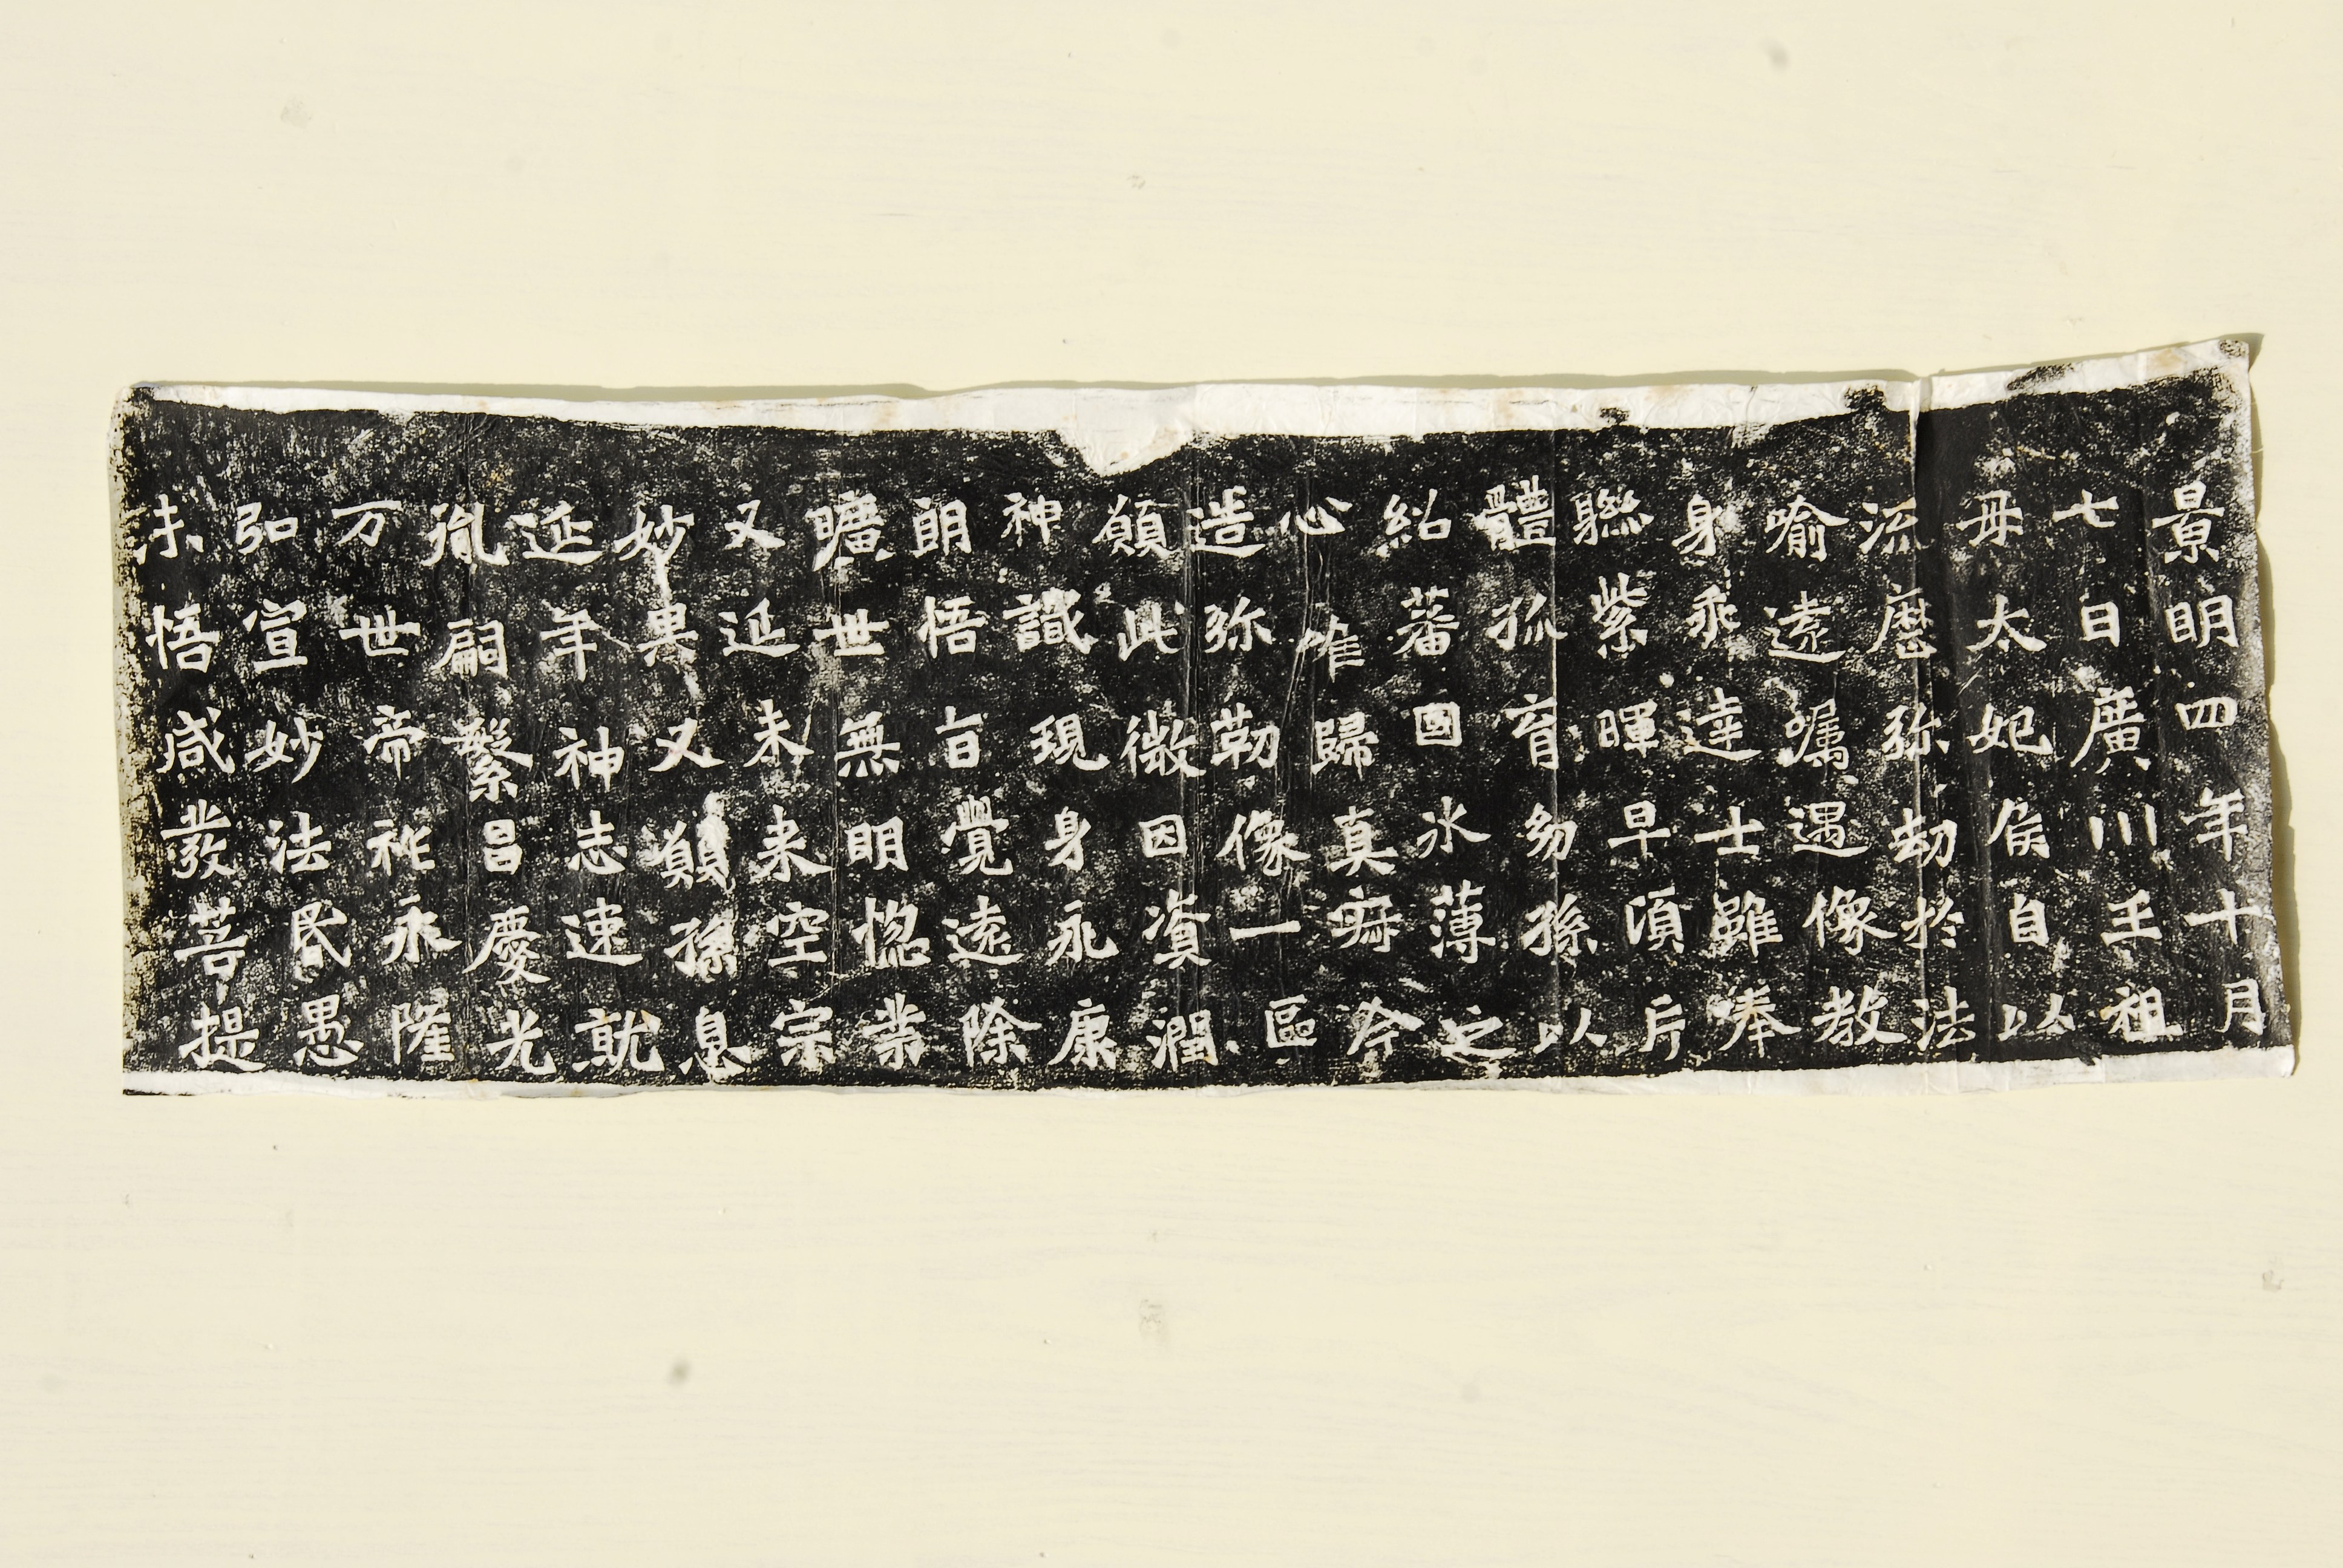 景明四年十月
七日廣川王祖
母太妃侯自以
流歷弥劫於法
喻遠嘱遇像教
身乖達士雖奉
聯紫暉早湏片
體孤育幼孫以
紹蕃國冰薄之
心唯歸真寂今
造弥勒像一區
願此微因資潤
神識現身永康
朗悟旨覺遠除
曠世無明惚業
又延未来空宗
妙果又願孫息
延年神志速就
胤嗣繁昌慶光
万世帝祚永隆
弘宣妙法昬愚
未悟咸發菩提